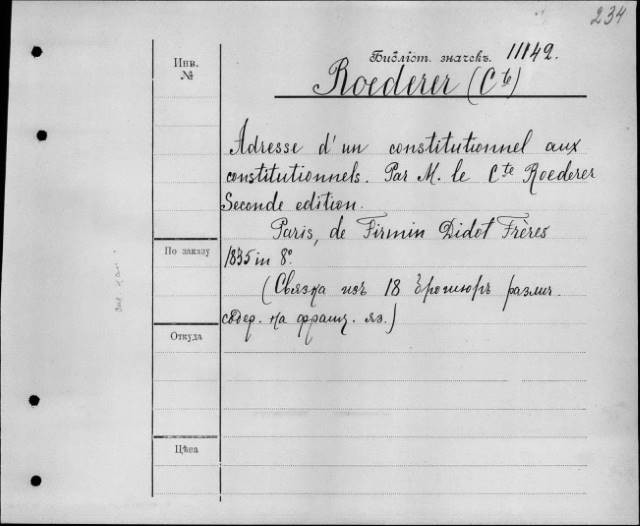 234
Инв. №
Библіот. значекъ. 11142.
Roederer (Cte)
Adresse d'un constitutionnel aux
constitutionnels. Par M. le Cte Roederer
Seconde edition.
Paris, de Firmin Didot Frères
По заказу
1835 in 8º.
(Связка изъ 18 брошюръ различ.
содер. на франц. яз.)
Откуда
Цѣна